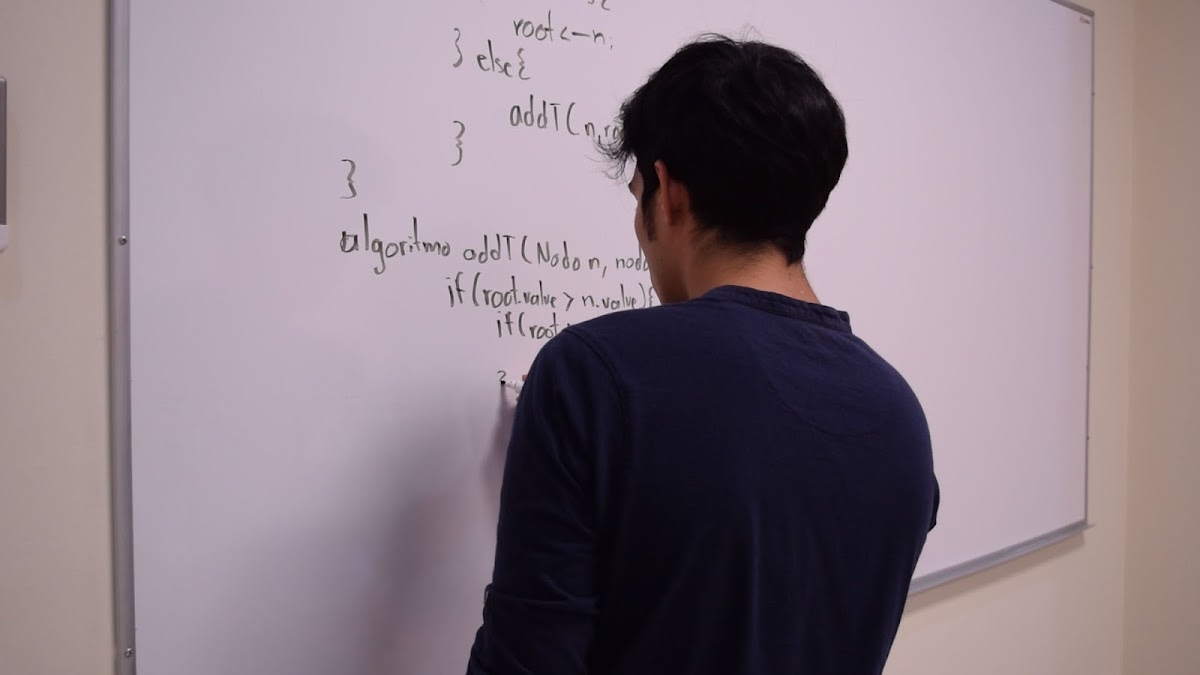 root <— n;
} else {
addT(n,
}
}
algoritmo addT(Nodo n, nodo
if(root.value > n.value){
if(root